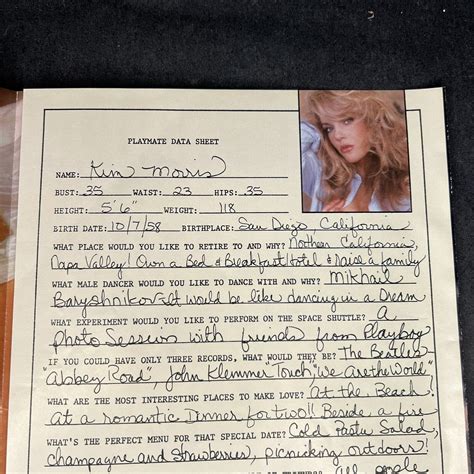 PLAYMATE DATA SHEET
NAME: Kim Morris
BUST: 35 WAIST: 23 HIPS: 35
HEIGHT: 5'6" WEIGHT: 118
BIRTH DATE: 10/7/58 BIRTHPLACE: San Diego California
WHAT PLACE WOULD YOU LIKE TO RETIRE TO AND WHY? Northern California,
Napa Valley! Own a Bed & Breakfast Hotel & raise a family
WHAT MALE DANCER WOULD YOU LIKE TO DANCE WITH AND WHY? Mikhail
Baryshnikov. It would be like dancing in a Dream
WHAT EXPERIMENT WOULD YOU LIKE TO PERFORM ON THE SPACE SHUTTLE? A
Photo Session with friends from Playboy
IF YOU COULD HAVE ONLY THREE RECORDS, WHAT WOULD THEY BE? The Beatles
"Abbey Road" John Klemmer "Touch" "We Are the World"
WHAT ARE THE MOST INTERESTING PLACES TO MAKE LOVE? At the Beach.
At a romantic Dinner for two!! Beside a fire
WHAT'S THE PERFECT MENU FOR THAT SPECIAL DATE? Cold Pasta Salad,
champagne and Strawberries, picnicking outdoors!